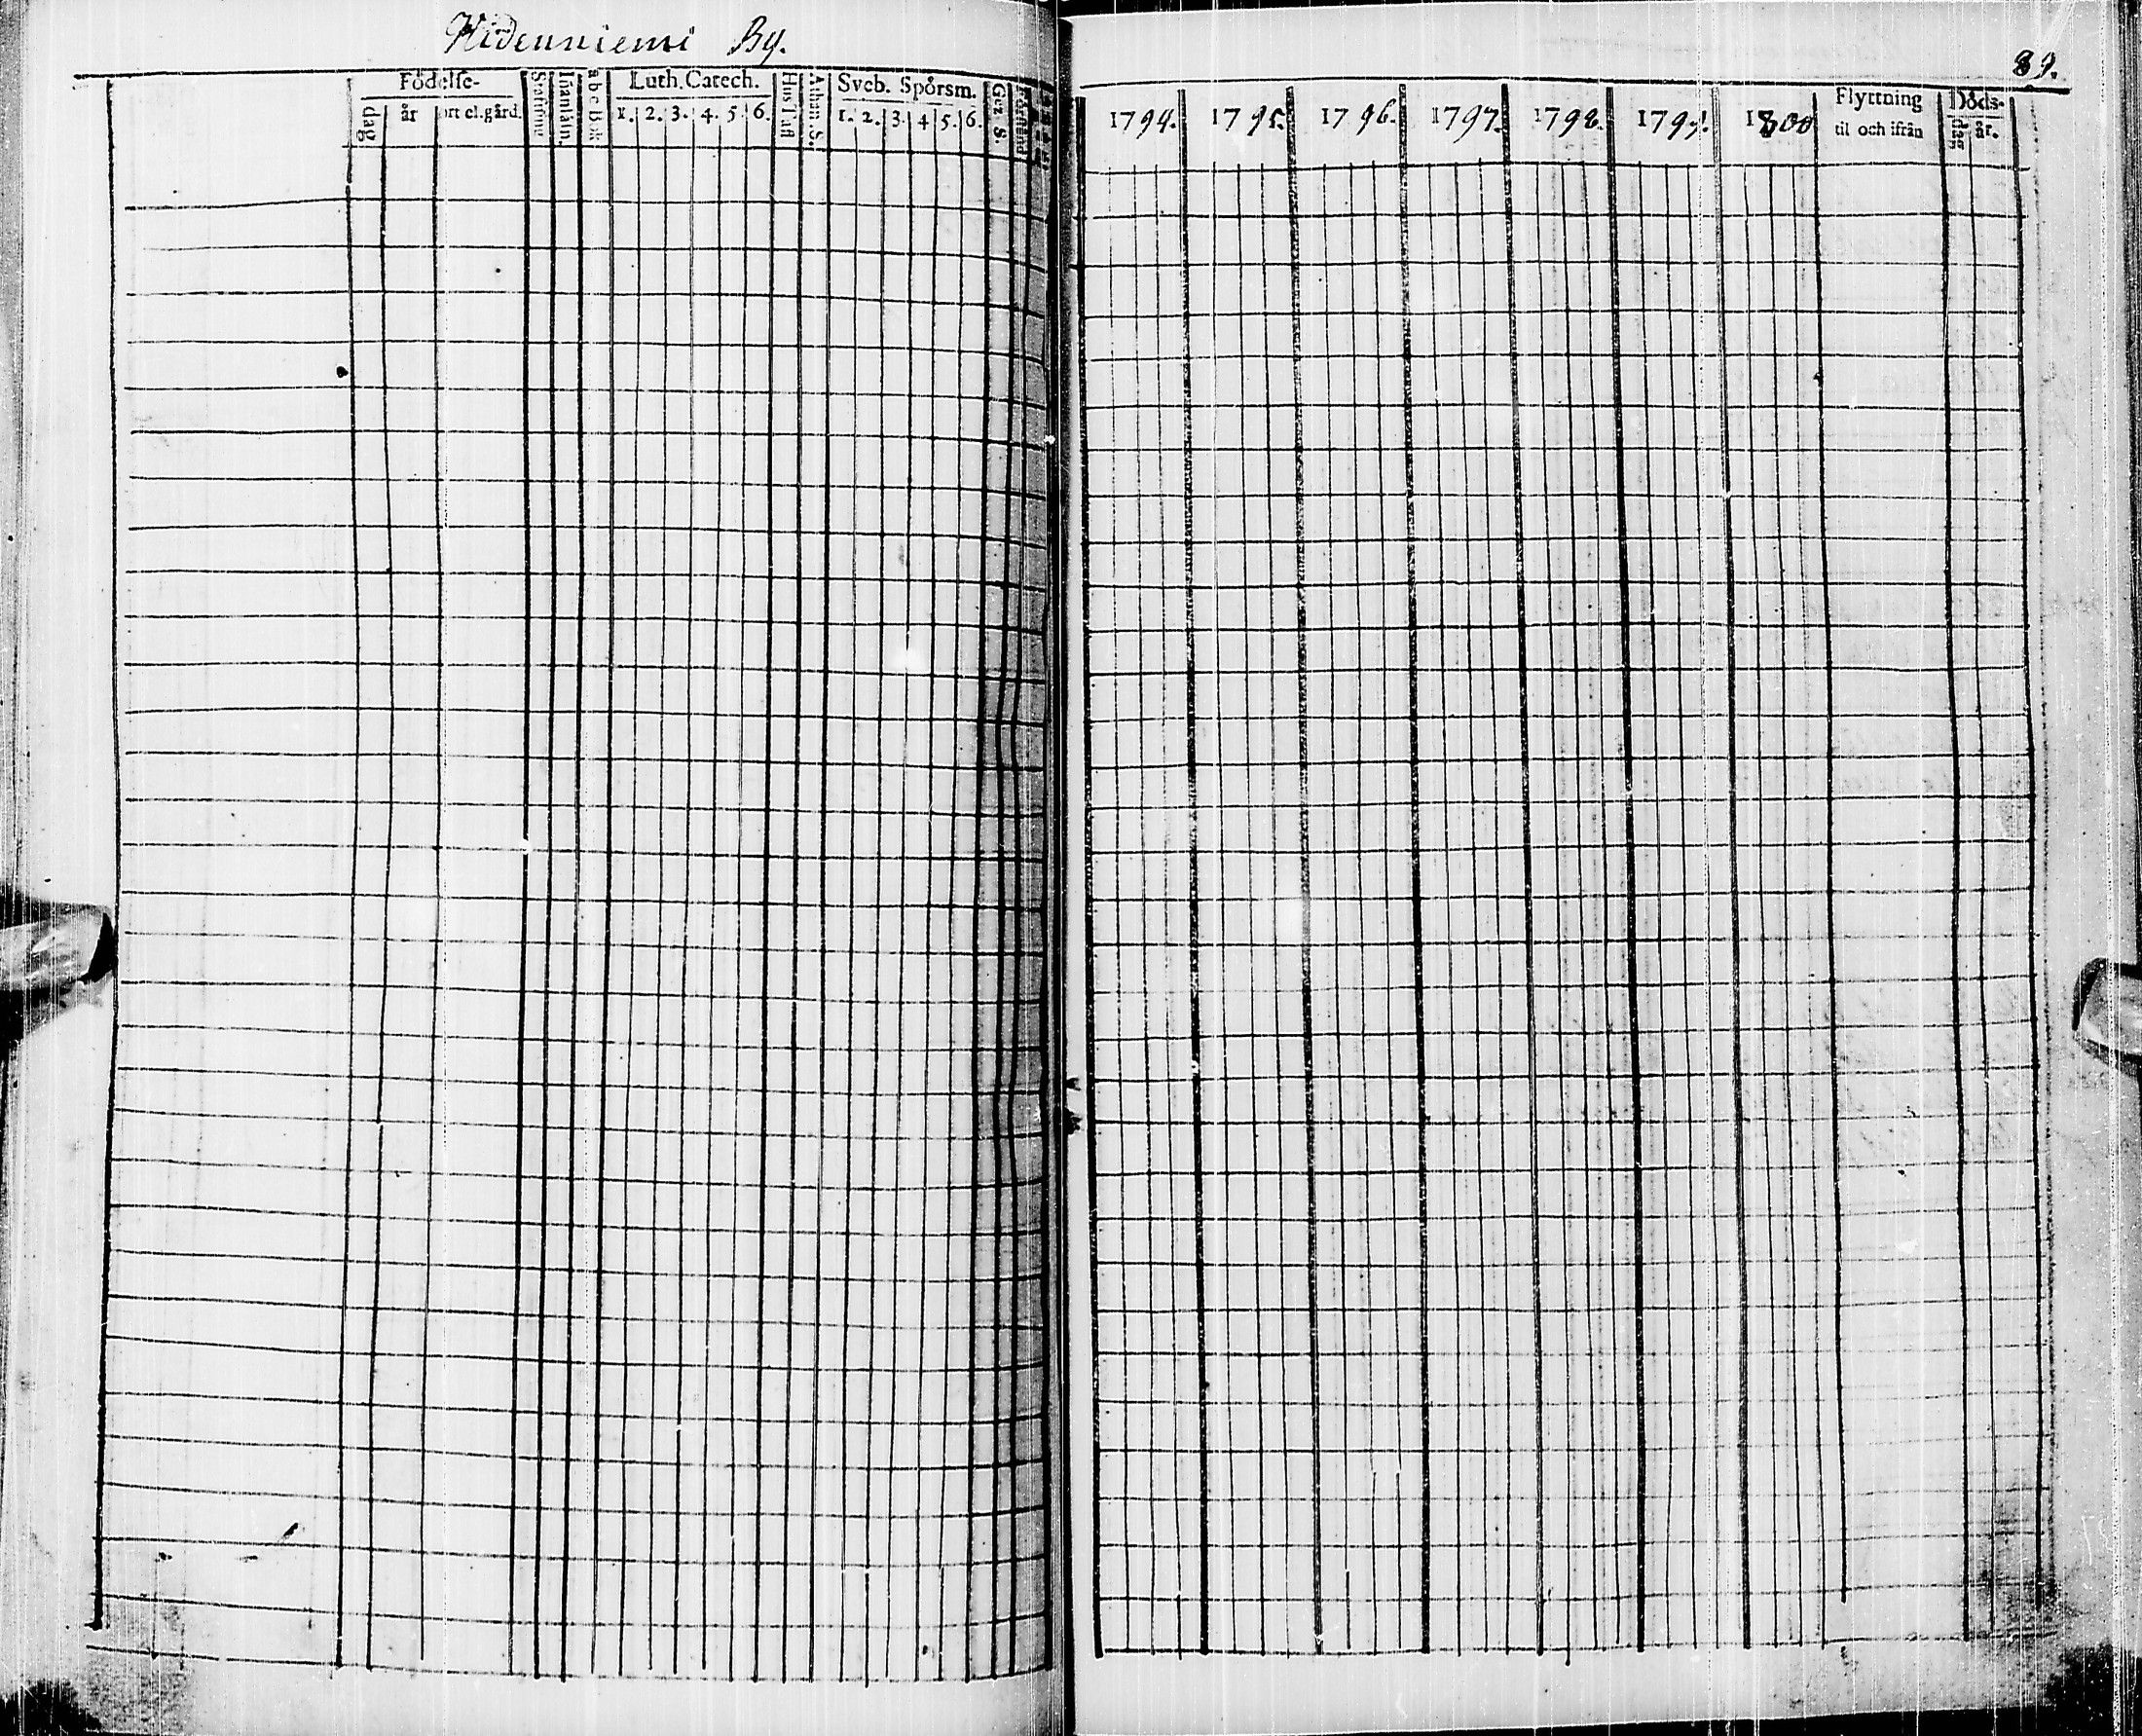 Hidenniemi By.
89.
Födelse-
dag år ort el. gård.
Stafning
Iñanläsn.
abc Bok
Luth. Catech.
1. 2. 3. 4. 5. 6.
Hus Tafl
Athan. S.
Sveb. Spörsm.
1. 2. 3. 4 5. 6.
Gez. S.
Förstånd
1794. 1795. 1796. 1797. 1798. 1799. 1800
Flyttning
til och ifrån
Döds-
dag år.